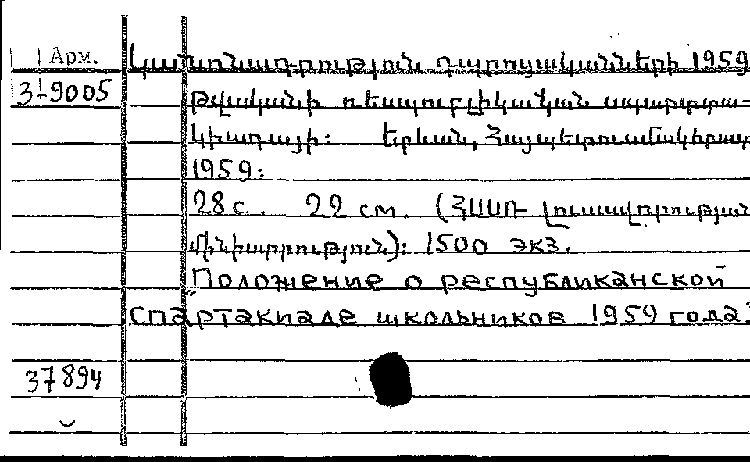 Арм.
Կանոնադրություն դպրոցականների 1959
3-9005
թվականի ռեսպուբլիկական սպարտա-
կիադայի: Երևան, Հայպետուսմանկհրատ
1959:
28 с. 22 см. (ՀՍՍՌ Լուսավորության
մինիստրություն): 1500 экз.
Положение о республиканской
спартакиаде школьников 1959 года.
37894